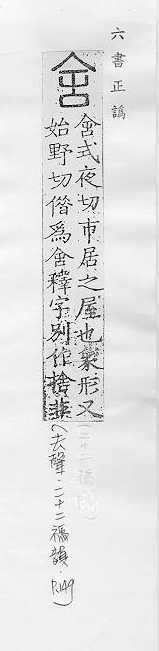 六書正譌
舍
舍式夜切市居之屋也象形又
始野切借為舍釋字別作捨非
(去聲.二十二禡韻.P.149)